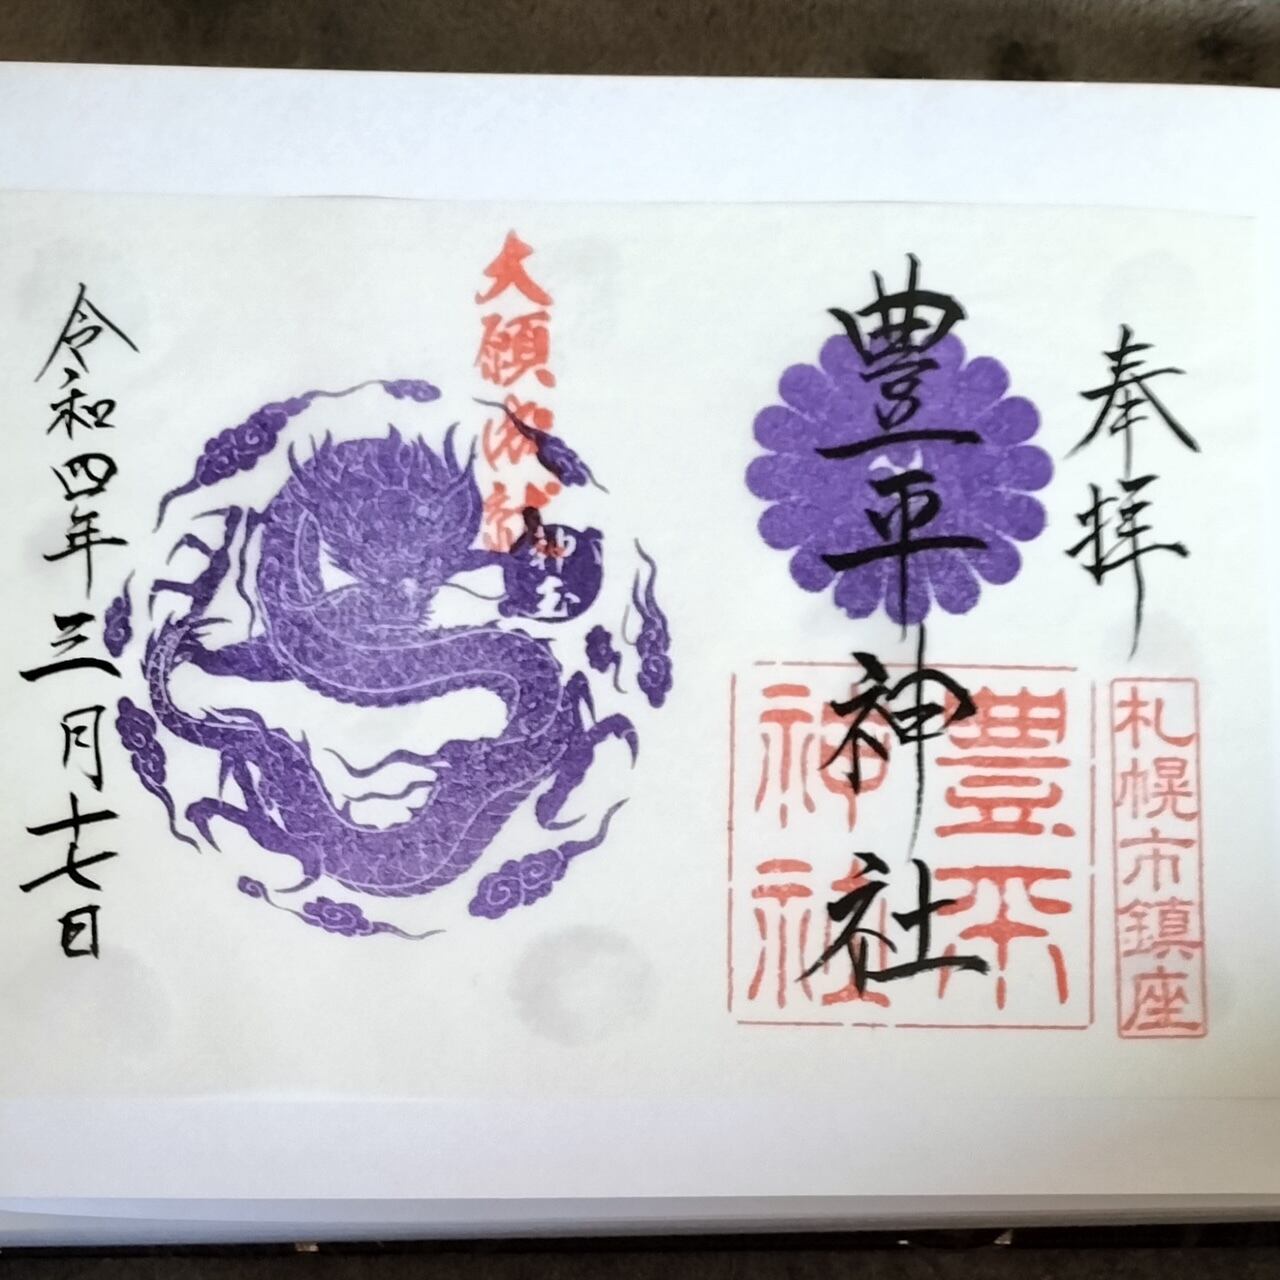 奉拝
札幌市鎮座
豊平神社
豊平
神社
大願成就
神玉
令和四年三月十七日